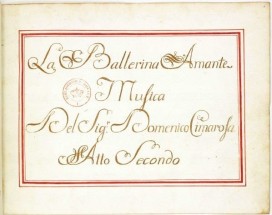 La Ballerina Amante
Musica
Del Sig.r Domenico Cimarosa
Atto Secondo